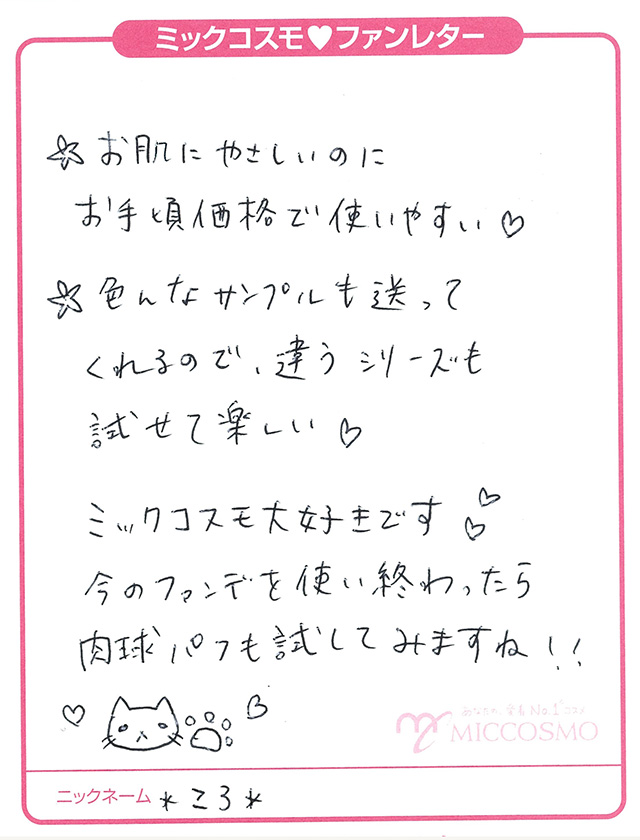 ミックコスモ♥ファンレター
☆お肌にやさしいのに
お手頃価格で使いやすい♡
☆色んなサンプルも送って
くれるので、違うシリーズも
試せて楽しい♡
ミックコスモ大好きです♡♡
今のファンデを使い終わったら
肉球パフも試してみますね!!
あなたの、愛着No.1コスメ
MICCOSMO
ニックネーム *こ3*